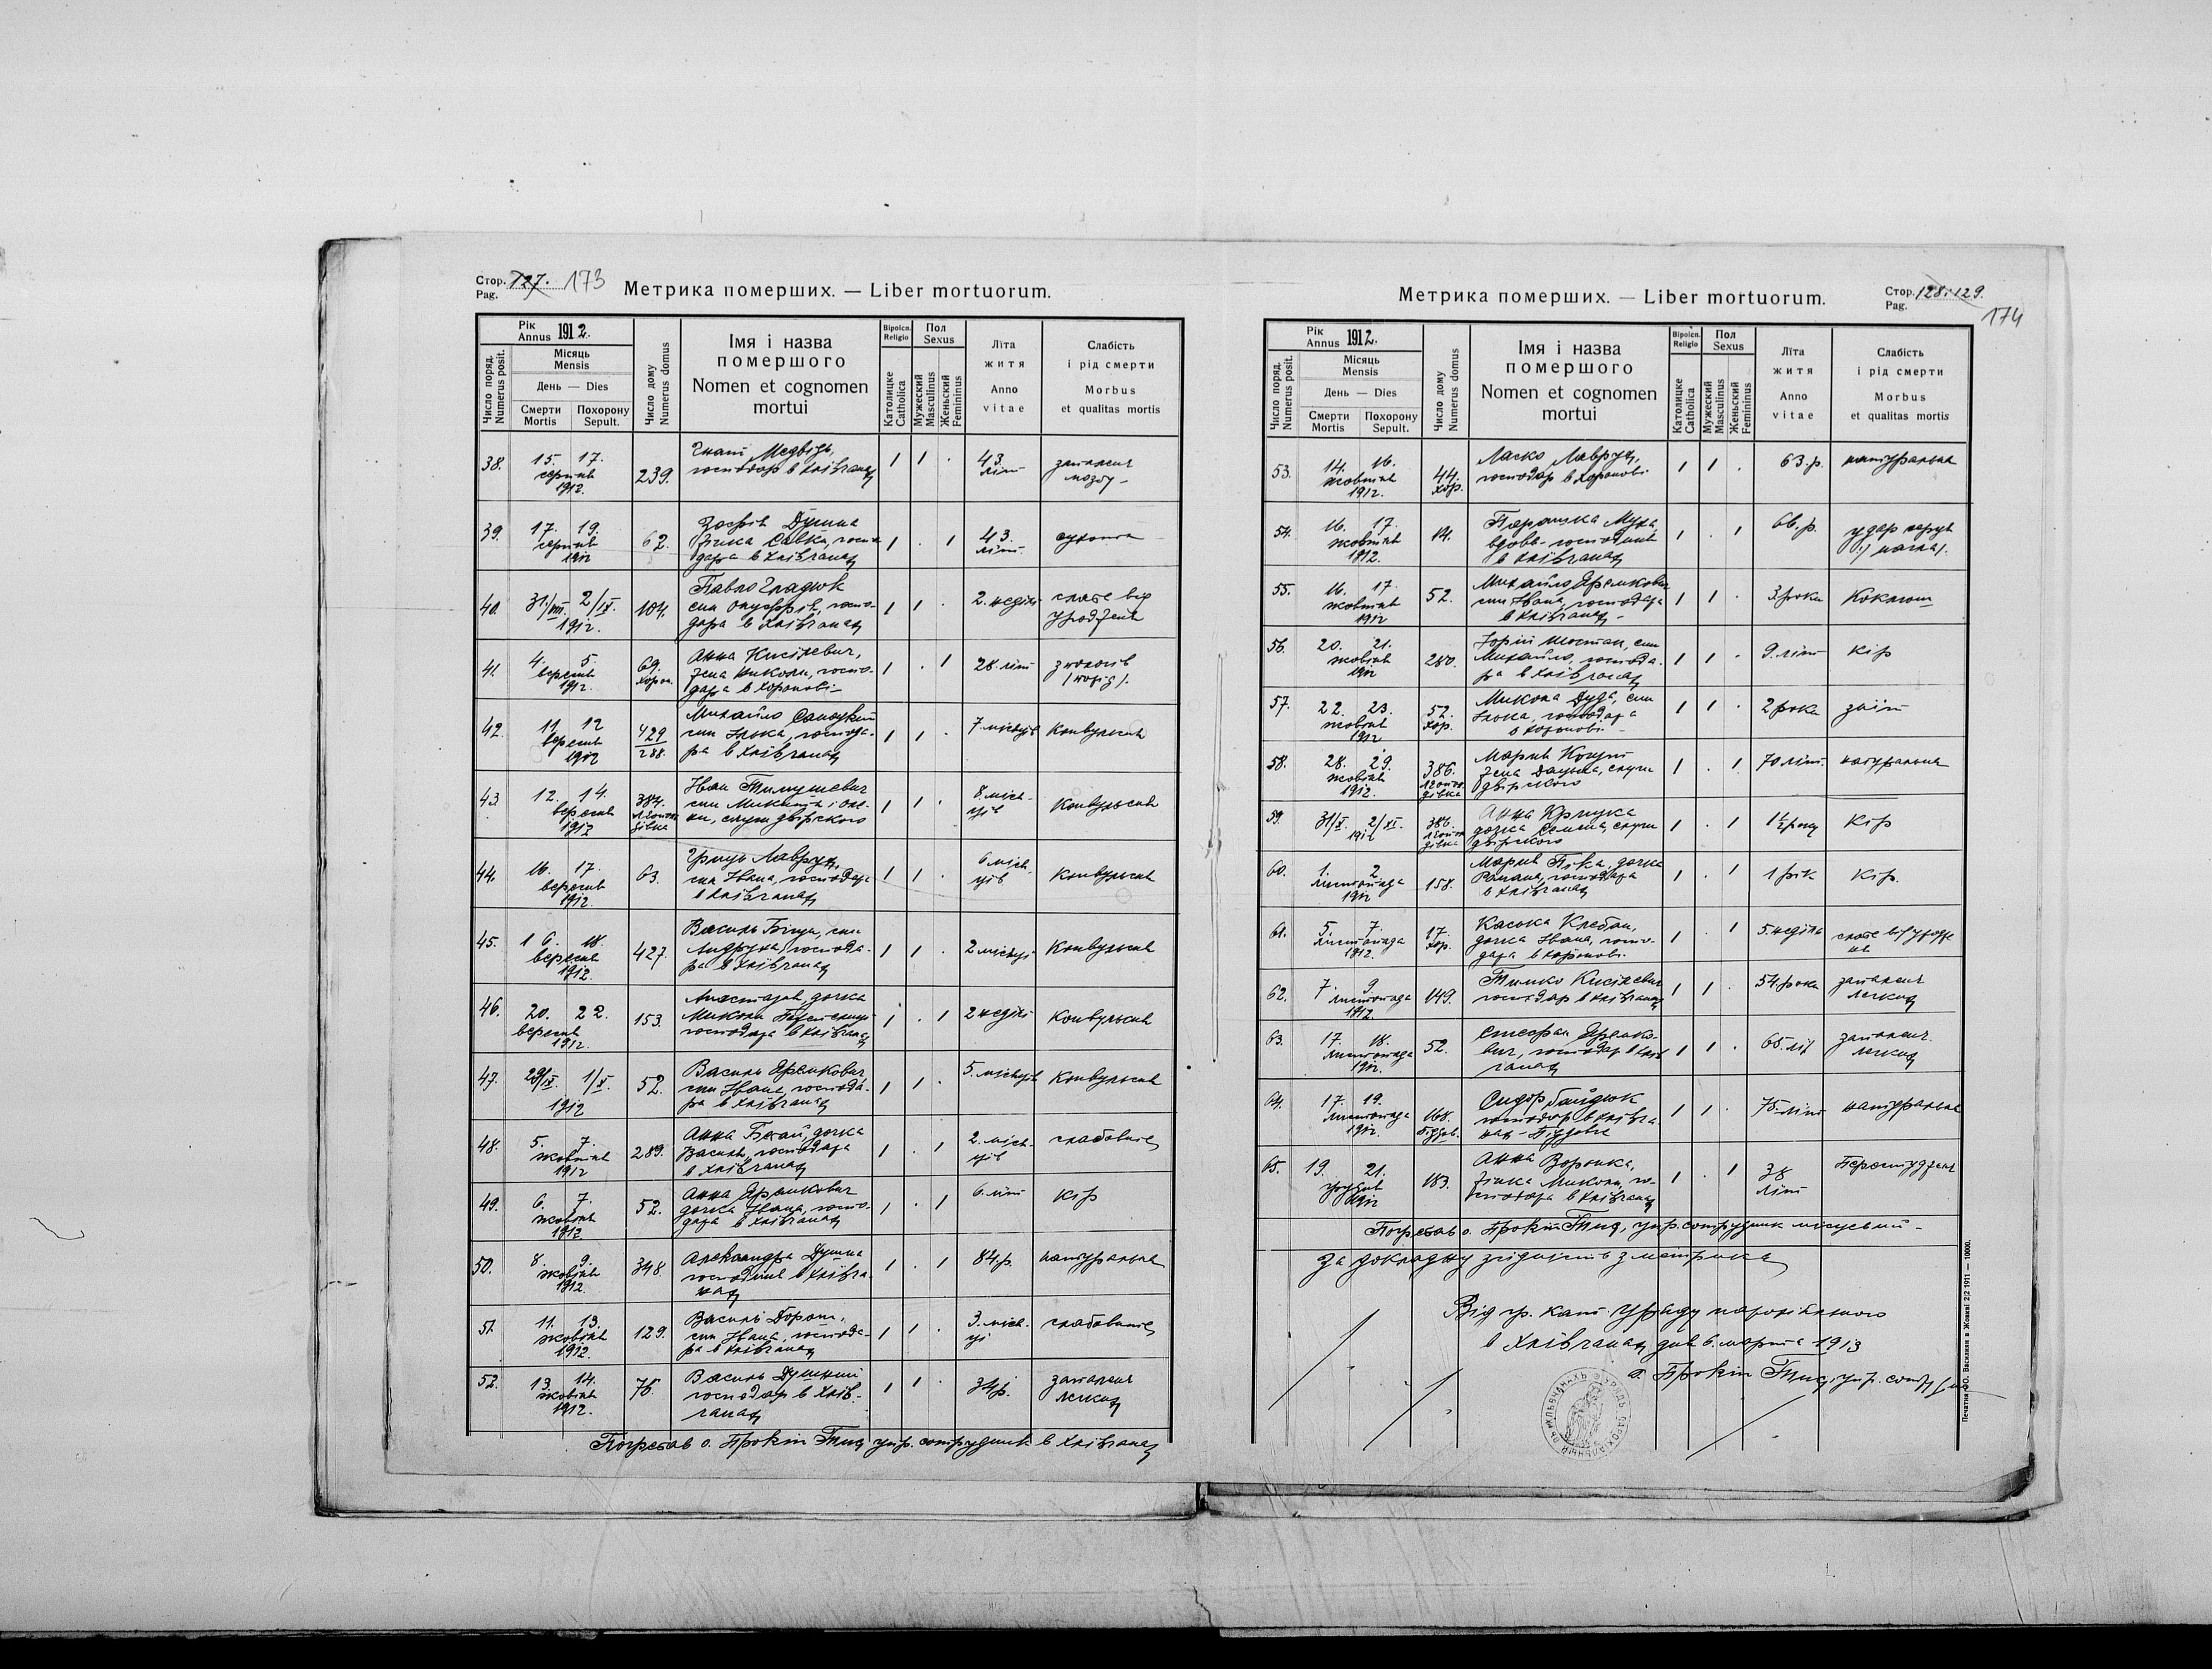 Стор. 127. 173
Pag.
Метрика померших. — Liber mortuorum.
Рік
Annus 1912.
Місяць
Mensis
День — Dies
Смерти
Mortis
Похорону
Sepult.
Число поряд.
Numerus posit.
Число дому
Numerus domus
Імя і назва
померш​ого
Nomen et cognomen
mortui
Віроісп.
Religio
Католицке
Catholica
Пол
Sexus
Мужеский
Masculinus
Женьский
Femininus
Літа
життя
Anno
vitae
Слабість
і рід смерти
Morbus
et qualitas mortis
38. 15. 17. 239. Гнат Медвідь, 1 1 . 43. запаленя
серпня господар в Хлівчанах літ мозгу -
1912.
39. 17. 19. 62. Зофія Душна 1 . 1 43. сухота
серпня жінка Савка, госпо- літ.
1912 дара в Хлівчанах
40. 31/VIII. 2/IX. 104. Павло Гладюк 1 1 . 2. неділі слабе від
1912. син Онуфрія, госпо- уродженя
дара в Хлівчанах
41. 4. 5. 69. Анна Кисілевич, 1 . 1 28. літ з пологів
вересня Хорон. жена Николи, госпо-
1912. дара в Хоронові
42. 11. 12 429 Михайло Саноцкий 1 1 . 7. місяців конвульсия
вересня 288. син Ілька, господа-
1912 ра в Хлівчанах
43. 12. 14. 384. Іван Тимушевич 1 1 . 8. міся- конвульсия
вересня син Микити і Оле- ців
1912 ни, слуги двірского
44. 16. 17. 63. Гриць Лаврух, 1 1 . 6 міся- конвульсия
вересня син Івана, господара ців
1912. в Хлівчанах
45. 16. 18. 427. Василь Біщи, син 1 1 . 2 місяці Конвульсия
вересня Андруха, господа-
1912. ра в Хлівчанах
46. 20. 22. 153. Анастазия, дочка 1 . 1 2 неділі конвульсия
вересня Миколи
1912. господара в Хлівчанах
47. 29/IX. 1/X. 52. Василь Яремкович 1 1 . 5. місяців конвульсия
1912 син Івана, господа-
ра в Хлівчанах
48. 5. 7. 289. Анна Бегай, дочка 1 . 1 2. міся- слабовите
жовтня Василя, господара ців
1912 в Хлівчанах
49. 6. 7. 52. Анна Яремкович 1 . 1 6. літ кір
жовтня дочка Івана, госпо-
1912 дара в Хлівчанах
50. 8. 9. 348. Александра Душна 1 . 1 84.р. натуральна
жовтня господиня в Хлівча-
1912. нах
51. 11. 13. 129. Василь Дорош, 1 1 . 3. міся- слабовите
жовтня син Івана, господа- ці
1912. ра в Хлівчанах
52. 13. 14. 75. Василь Душний 1 1 . 34 р. запаленя
жовтня господар в Хлів- легких
1912. чанах
Погребав о. Прокіп Тиц упр. сотрудник в Хлівчанах
Метрика померших. — Liber mortuorum.
Стор. 128. 129.
Pag.
174
Рік
Annus 1912.
Місяць
Mensis
День — Dies
Смерти
Mortis
Похорону
Sepult.
Число поряд.
Numerus posit.
Число дому
Numerus domus
Імя і назва
помершого
Nomen et cognomen
mortui
Віроісп.
Religio
Католицке
Catholica
Пол
Sexus
Мужеский
Masculinus
Женьский
Femininus
Літа
життя
Anno
vitae
Слабість
і рід смерти
Morbus
et qualitas mortis
53. 14. 16. 44. Ласко Лаврух, 1 1 . 63.р. натуральна
жовтня Хор. господар в Хоронові
1912.
54. 16. 17. 14. Параска Муха, 1 . 1 66.р. удар серця
жовтня вдова - господиня / нагла /.
1912. в Хлівчанах
55. 16. 17. 52. Михайло Яремкович 1 1 . 3 роки Коклюш
жовтня син Івана, господара
1912 в Хлівчанах -
56. 20. 21. 280. Юрій Шостак, син 1 1 . 9. літ кір
жовтня Михайла, господа-
1912 ра в Хлівчанах
57. 22. 23. 52. Микола Дуда, син 1 1 . 2 рока
жовтня Хор. Ілька, господара
1912 в Хоронові -
58. 28. 29. 386. Мария Когут 1 . 1 70 літ. натуральна
жовтня жена Данька, слуги
1912. двірского
59. 31/X. 2/XI. 386. Анна 1 . 1 1 1/2 року кір
1912 дочка Семена, слуги
двірского
60. 1. 2 158. Мария Пука, дочка 1 . 1 1 рік кір.
листопада Романа, господара
1912 в Хлівчанах
61. 5. 7. 17. Каська Клебан, 1 . 1 5 неділь слабе від уродже
листопада Хор. дочка Івана, госпо- ня
1912. дара в Хоронові
62. 7. 9 149. Тимко Кисілевич 1 1 . 54. рока запаленя
листопада господар в Хлівчанах легких
1912.
63. 17. 18. 52. Стефан Яремко- 1 1 . 65. літ запаленя
листопада вич, господар в Хлів легких
1912. чанах
64. 17. 19. 168. Сидор Байдюк 1 1 . 75. літ натуральна
листопада господар в Хлівча
1912. нах -
65. 19. 21. 183. Анна Воронка, 1 . 1 38 Перестудженя
грудня жінка Миколи, го- літ
1912 сподара в Хлівчанах
Погребав о. Прокіп Тиц, упр. сотрудник місцевий -
За докладну згідність з метрикою
Від гр. кат. Уряду парохіяльного
в Хлівчанах дня 6. марта 1913
о. Прокіп Тиц упр. сотр.
Печатня ОО. Василиян в Жовкві 2|2 1911 — 10000.